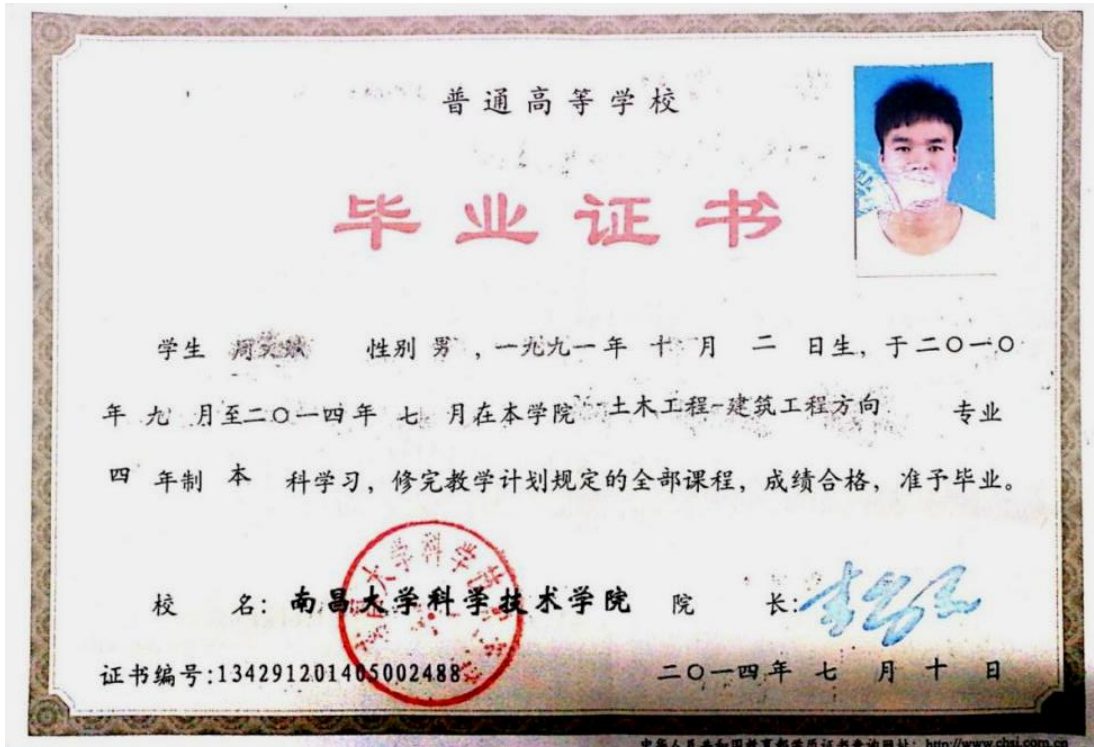 普通高等学校
毕业证书
学生 周文斌 性别 男 ，一九九一年 十 月 二 日生，于二〇一〇
年 九 月至二〇一四年 七 月在本学院 土木工程-建筑工程方向 专业
四 年制 本 科学习，修完教学计划规定的全部课程，成绩合格，准予毕业。
校 名：南昌大学科学技术学院 院 长：
证书编号:134291201405002488 二〇一四年 七 月 十 日
中华人民共和国教育部学历证书查询网址：http://www.chsi.com.cn